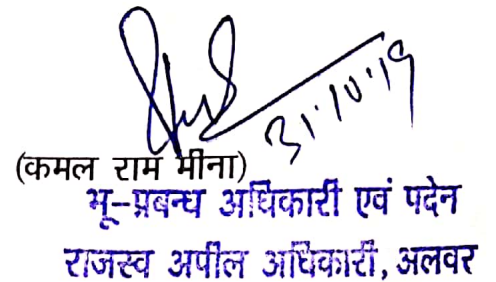 31.10.19
(कमल राम मीना)
भू-प्रबन्ध अधिकारी एवं पदेन
राजस्व अपील अधिकारी, अलवर